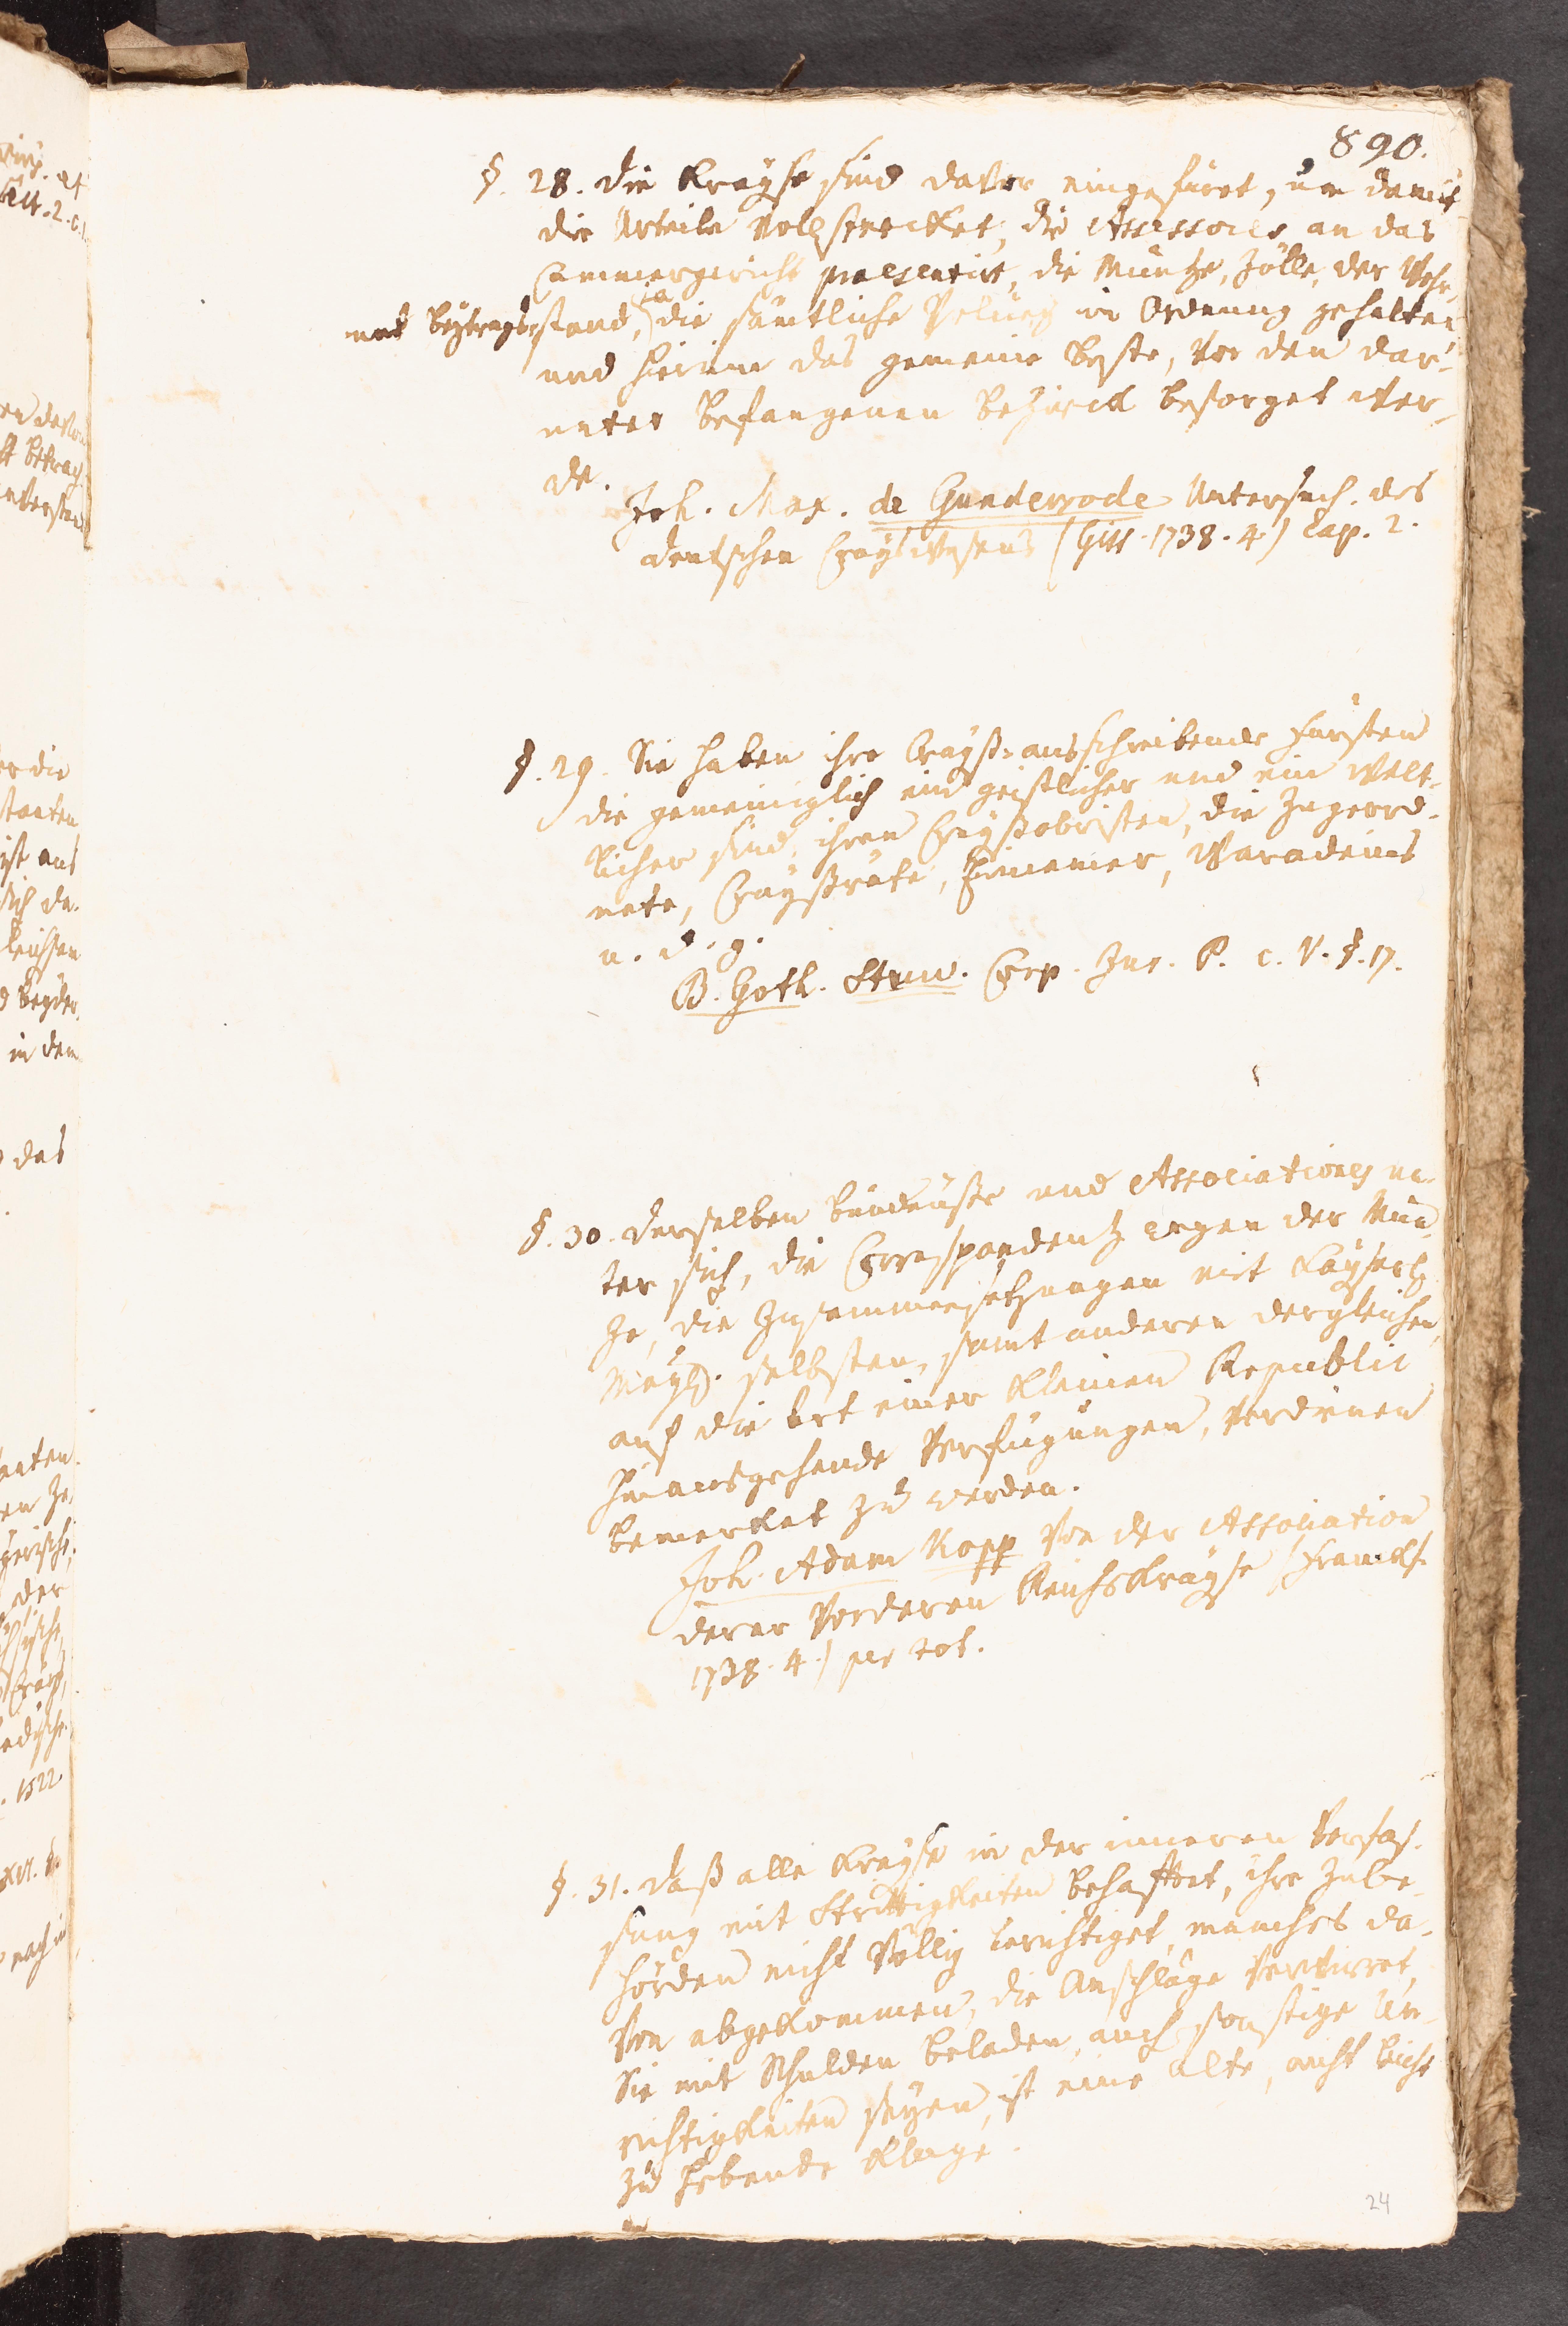 890.
§. 28. die Krayse sind davor eingefüret, um damit
die Urteile vollstrecket, die Assessores an das
Cammergericht praesentirt, die Müntze, Zölle, der Wehr-
und Beytrags-stand, ja die sämtliche Policey in Ordnung gehalten
und hierinne das gemeine Beste, vor den dar-
unter befangenen Bezirck besorget wer-
de.
Joh. Max. de Gunderrode Untersuch. des
deutschen Crayswesens (Giss. 1738. 4.) Cap. 2.
§. 29. Sie haben ihre Crayß-ausschreibende Fürsten
die gemeiniglich ein geistlicher und ein Welt-
licher sind, ihren Crayßobristen, die Zugeord-
nete, Crayßräte, Einnemer, Waradeins
u. d. g.
B. Goth. Struv. Corp. Jur. P. c. V. §. 17.
§. 30. Derselben Bündnüsse und Associationes un-
ter sich, die Correspondentz wegen der Mün-
ze, die Zusammensetzungen mit Kayserl.
Mayt. selbsten, samt anderen dergleichen,
auf die Art einer kleinen Republic
hinausgehende Verfügungen, verdienen
bemerket zu werden.
Joh. Adam Kopp von der Association
derer Vorderen ReichsKrayse (Franckf.
1738. 4.) per tot.
§. 31. Daß alle Krayse in der inneren Verfas-
sung mit Strittigkeiten behafftet, ihre Zube-
hörden nicht völlig berichtiget, manches da-
von abgekommen, die Anschläge verwirret,
Sie mit Schulden beladen, auch sonstige Un-
richtigkeiten seyen, ist eine alte, nicht leicht
zu hebende Klage.
24